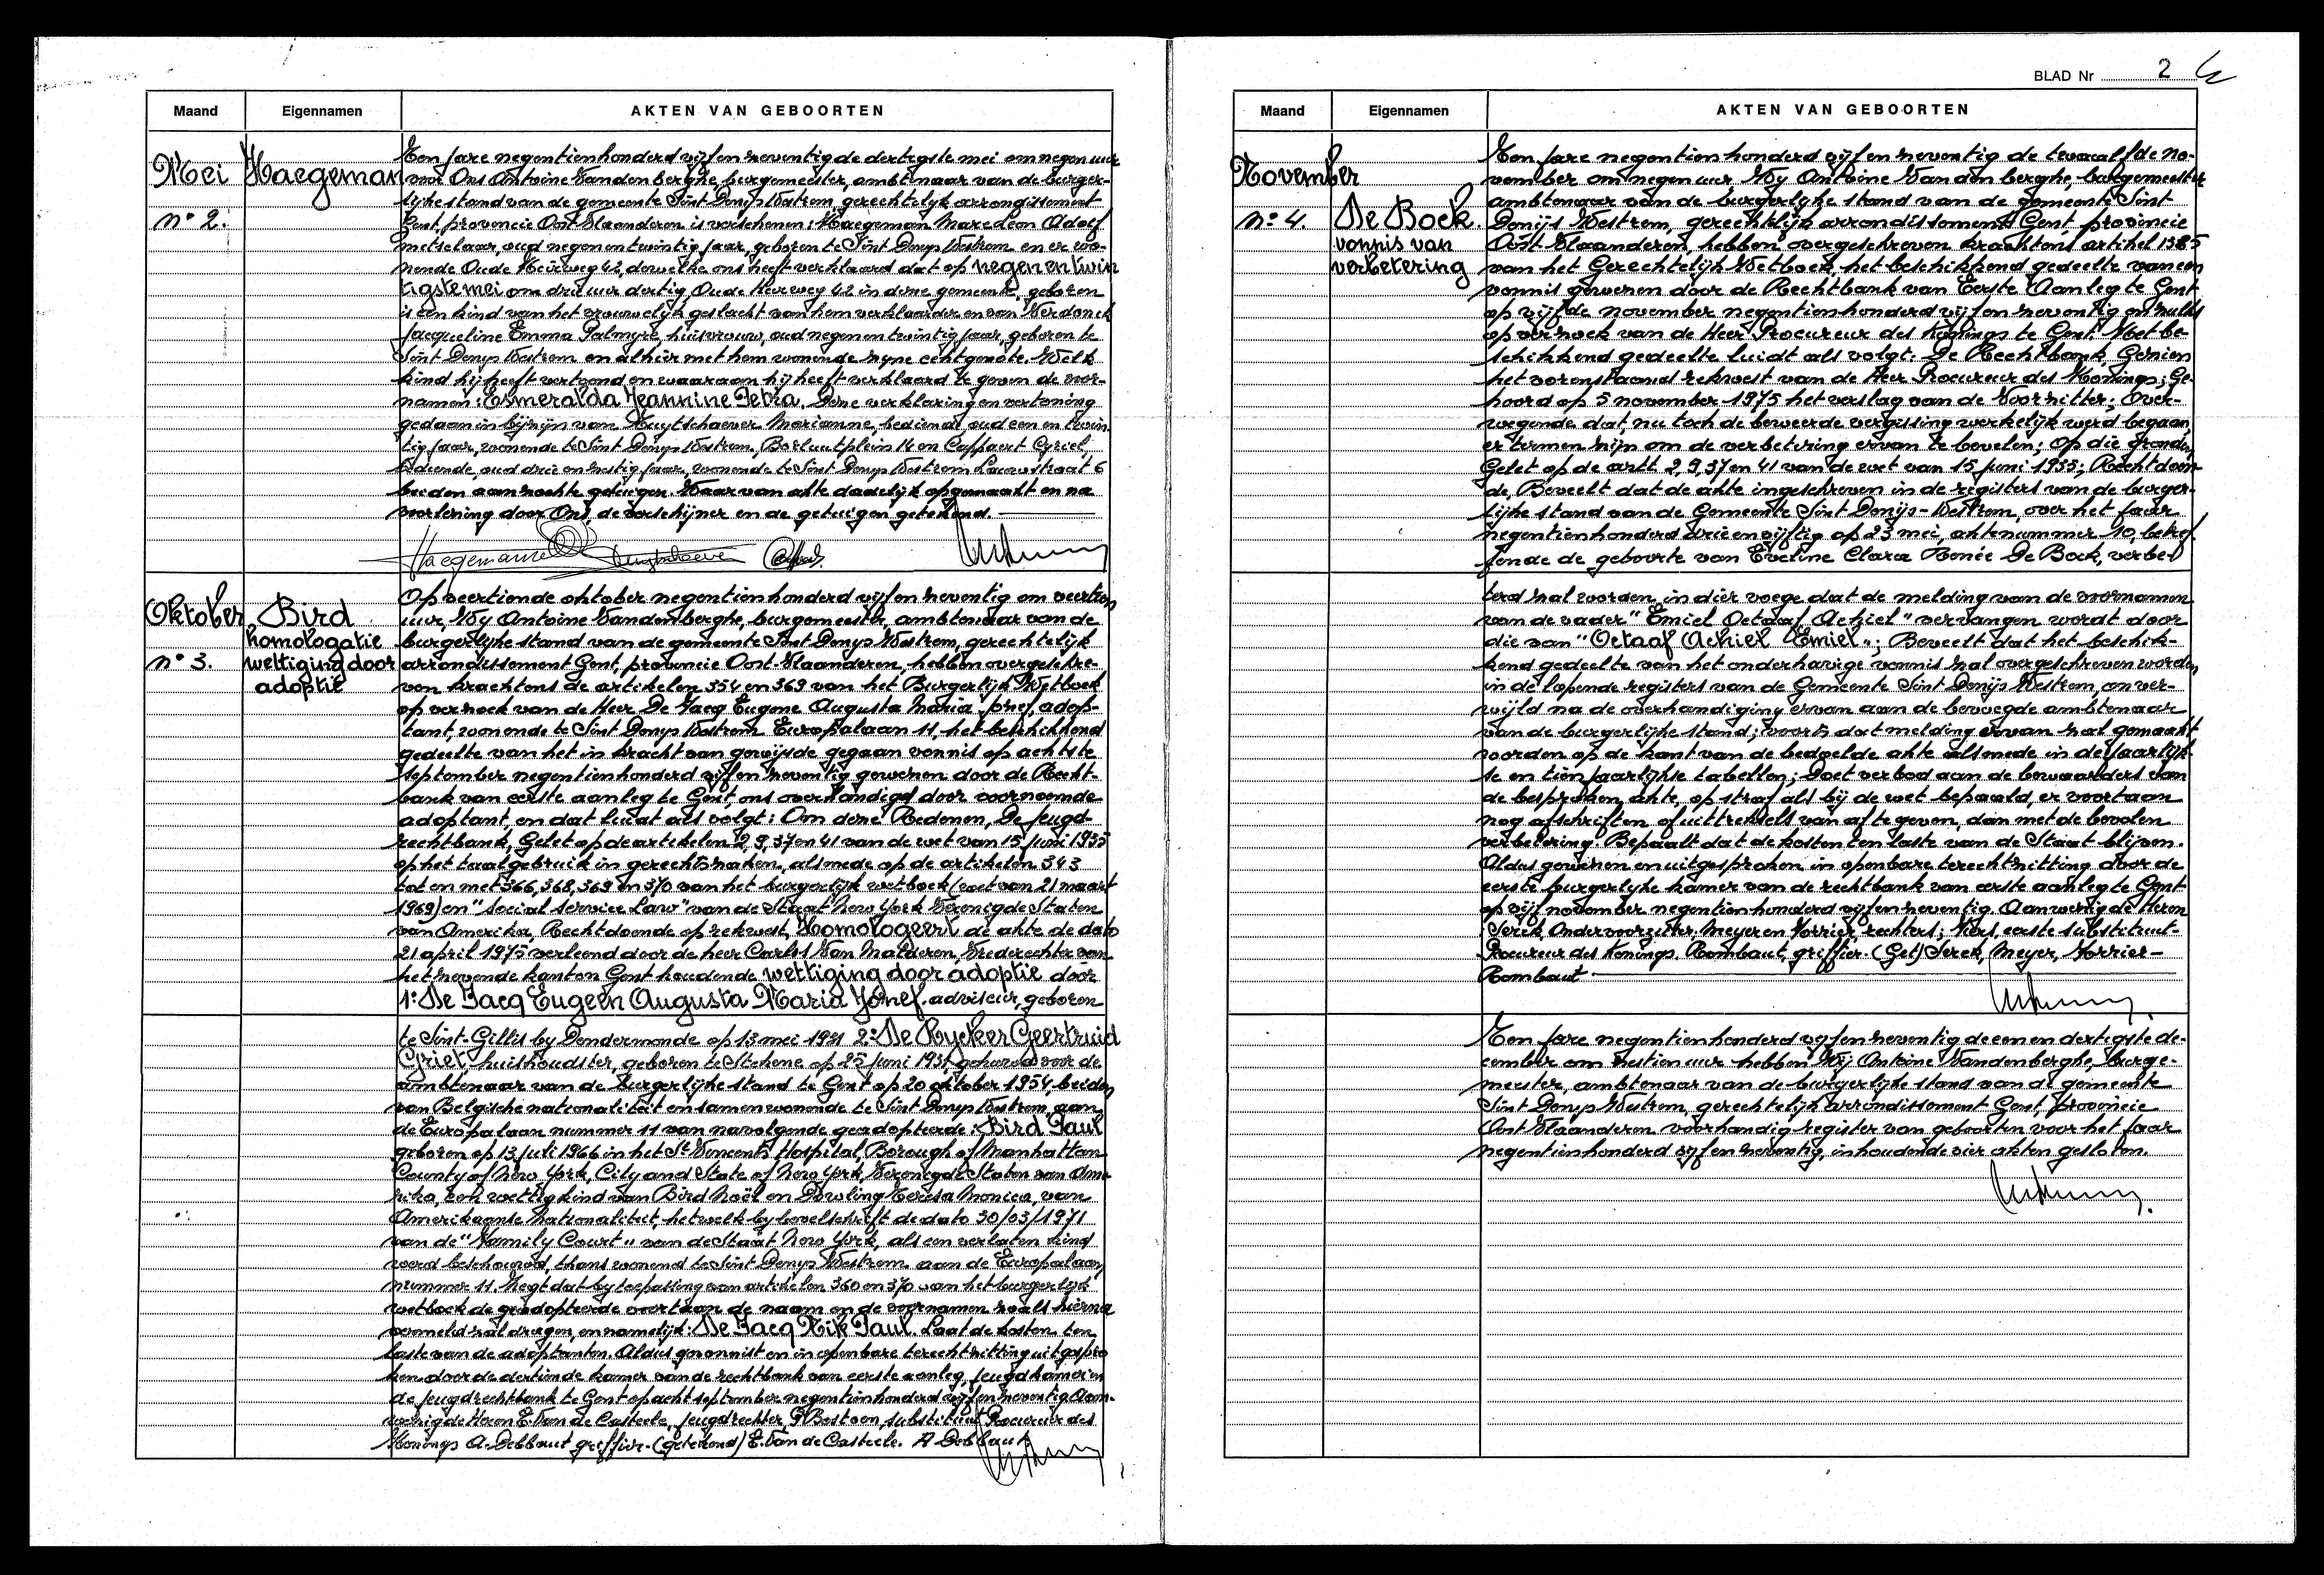 Maand Eigennamen AKTEN VAN GEBOORTEN
Mei Haegeman
n° 2.
Ten jare negentienhonderd vijfenzeventig de dertigste mei om negen uur
voor Ons Antoine Vandenberghe, burgemeester, ambtenaar van de burger-
lijke stand van de gemeente Sint Denys Westrem, gerechtelijk arrondissement
Gent, provincie Oost Vlaanderen is verschenen: Haegeman Marc Leon Adolf
metselaar, oud negenentwintig jaar, geboren te Sint Denys Westrem en er wo-
nende Oude Heirweg 42, dewelke ons heeft verklaard dat op negenentwin
tigste mei om drie uur dertig, Oude Heirweg 42 in deze gemeente, geboren
is een kind van het vrouwelijk geslacht van hem verklaarder en van Verdonck
Jacqueline Emma Palmyre, huisvrouw, oud negenentwintig jaar, geboren te
Sint Denys Westrem en alhier met hem wonende zyne echtgenote. Welk
kind hij heeft vertoond en waaraan hij heeft verklaard te geven de voor-
namen: Esmeralda Jeannine Petra. Deze verklaring en vertoning
gedaan in bijzijn van Huytschaever Marianne, bediende, oud een en twin
tig jaar, wonende te Sint Denys Westrem, Borluutplein 14 en Cappaert Cyriel,
bediende, oud drie en zestig jaar, wonende te Sint Denys Westrem Lauwstraat 6
beiden aanzochte getuigen. Waarvan akte dadelijk opgemaakt en na
voorlezing door Ons, de verschijner en de getuigen getekend.
Haegeman
Oktober Bird
homologatie
n° 3. wettiging door
adoptie
Op veertiende oktober negentienhonderd vijfenzeventig om veertien
uur, Wy Antoine Vandenberghe, burgemeester, ambtenaar van de
burgerlijke stand van de gemeente Sint Denys Westrem, gerechtelijk
arrondissement Gent, provincie Oost Vlaanderen, hebben overgeschre-
ven krachtens de artikelen 354 en 369 van het Burgerlijk Wetboek
op verzoek van de Heer De Jaeg Eugene Augusta Maria Jozef, adop-
tant, wonende te Sint Denys Westrem Europalaan 11, het beschikkend
gedeelte van het in kracht van gewijsde gegaan vonnis op achtste
september negentienhonderd vijfenzeventig gewezen door de Recht-
bank van eerste aanleg te Gent, ons overhandigd door voornoemde
adoptant, en dat luidt als volgt: Om deze Redenen, De Jeugd-
rechtbank, Gelet op de artikelen 2,9,37 en 41 van de wet van 15 juni 1935
op het taalgebruik in gerechtszaken, alsmede op de artikelen 343
tot en met 366, 368, 369 en 370 van het burgerlijk wetboek (wet van 21 maart
1969) en "Social Service Law" van de Staat New York Verenigde Staten
van Amerika, Rechtdoende op rekwest, Homologeert de akte de dato
21 april 1975 verleend door de heer Carlos Van Malderen, Vrederechter van
het zevende kanton Gent houdende wettiging door adoptie door
1: De Jaeg Eugeen Augusta Maria Jozef. adviseur, geboren
te Sint-Gillis by Dendermonde op 13 mei 1931 2: De Rycker Geertruid
Griet, huishoudster, geboren te Stekene op 25 juni 1931, gehuwd voor de
ambtenaar van de burgerlijke stand te Gent op 20 oktober 1954, beiden
van Belgische nationaliteit en samenwonende te Sint Denys Westrem, aan
de Europalaan nummer 11 van navolgende geadopteerde: Bird Paul
geboren op 13 juli 1966 in het St Vincents Hospital, Borough of Manhattan
County of New York, City and State of New York, Verenigde Staten van Ame-
rika, een wettig kind van Bird Noël en Dowling Teresa Monica, van
Amerikaanse Nationaliteit, hetwelk by bevelschrift de dato 30/03/1971
van de "Family Court" van de Staat New York, als een verlaten kind
werd beschouwd, thans wonend te Sint Denys Westrem aan de Europalaan
nummer 11. Zegt dat by toepassing van artikelen 360 en 370 van het burgerlijk
wetboek de geadopteerde voortaan de naam en de voornamen zoals hierna
vermeld zal dragen, en namelijk: De Jaeg Rik Paul. Laat de kosten ten
laste van de adoptanten. Aldus gevonnist en in openbare terechtzitting uitgespro
ken door de dertiende kamer van de rechtbank van eerste aanleg, jeugdkamer in
de jeugdrechtbank te Gent op acht september negentienhonderd vijfenzeventig Aan-
wezig de Heren E. Van de Casteele, jeugdrechter, G Bestoen, substituut Procureur des
Konings A. Debbaut griffier. (getekend) E. Van de Casteele. A Debbaut
BLAD Nr 2
Maand Eigennamen AKTEN VAN GEBOORTEN
November
n° 4. De Bock.
vonnis van
verbetering
Ten jare negentienhonderd vijfenzeventig de twaalfde no-
vember om negen uur, Wy Antoine Vandenberghe, burgemeester
ambtenaar van de burgerlijke stand van de gemeente Sint
Denijs Westrem, gerechtelijk arrondissement Gent, provincie
Oost Vlaanderen, hebben overgeschreven krachtens artikel 1385
van het Gerechtelijk Wetboek, het beschikkend gedeelte van een
vonnis gewezen door de Rechtbank van Eerste Aanleg te Gent
op vijfde november negentienhonderd vijfenzeventig en zulks
op verzoek van de Heer Procureur des Konings te Gent. Het be-
schikkend gedeelte luidt als volgt: De Rechtbank, Gezien
het vorenstaand rekwest van de Heer Procureur des Konings; Ge-
hoord op 5 november 1975 het verslag van de Voorzitter; Over-
wegende dat nu toch de beweerde vergissing werkelijk werd begaan,
er termen zijn om de verbetering ervan te bevelen; Op die gronden,
Gelet op de artt 2,9,37 en 41 van de wet van 15 juni 1935; Rechtdoen-
de, Beveelt dat de akte ingeschreven in de registers van de burger-
lijke stand van de Gemeente Sint Denijs-Westrem, over het jaar
negentienhonderd drieenvijftig op 23 mei, aktenummer 10, betref-
fende de geboorte van Eveline Clara Renée De Bock, verbe-
terd zal worden, in dier voege dat de melding van de voornamen
van de vader "Emiel Octaaf Achiel" vervangen wordt door
die van "Octaaf Achiel Emiel"; Beveelt dat het beschik-
kend gedeelte van het onderhavige vonnis zal overgeschreven worden
in de lopende registers van de Gemeente Sint Denijs Westrem, onver-
wijld na de overhandiging ervan aan de bevoegde ambtenaar
van de burgerlijke stand; voorts dat melding ervan zal gemaakt
worden op de kant van de bedoelde akte alsmede in de jaarlijk-
se en tienjaarlijkse tabellen; Doet verbod aan de bewaarders van
de besproken akte, op straf als bij de wet bepaald, er voortaan
nog afschriften of uittreksels van af te geven, dan met de bevolen
verbetering. Bepaalt dat de kosten ten laste van de Staat blijven.
Aldus gewezen en uitgesproken in openbare terechtzitting door de
eerste burgerlijke kamer van de rechtbank van eerste aanleg te Gent
op vijf november negentienhonderd vijfenzeventig. Aanwezig de Heren
Serck, Ondervoorzitter, Meyer en Verrier, rechters; Kers, eerste substituut-
Procureur des Konings. Rombaut, griffier. (Get) Serck, Meyer, Verrier-
Rombaut
Ten jare negentienhonderd vijfenzeventig de eenendertigste de-
cember om zestien uur hebben Wij Antoine Vandenberghe, burge-
meester, ambtenaar van de burgerlijke stand van de gemeente
Sint Denys Westrem, gerechtelijk arrondissement Gent, provincie
Oost Vlaanderen voorhandig register van geboorten voor het jaar
negentienhonderd vijfenzeventig, inhoudende vier akten gesloten.